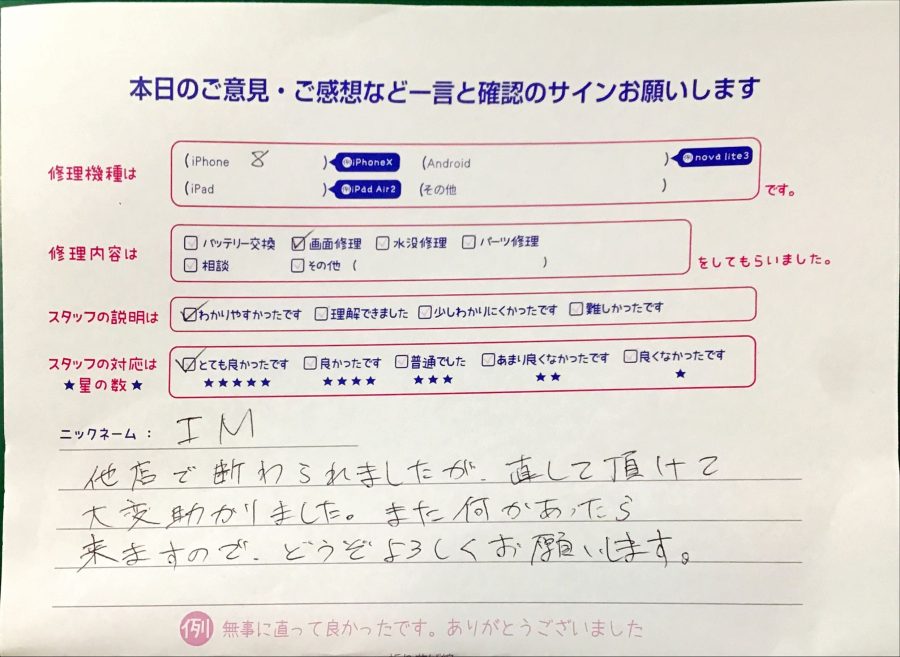 本日のご意見・ご感想など一言と確認のサインお願いします
修理機種は
(iPhone 8 ) iPhoneX (Android ) nova lite3
(iPad ) iPad Air2 (その他 ) です。
修理内容は
バッテリー交換 画面修理 水没修理 パーツ修理
相談 その他 ( ) をしてもらいました。
スタッフの説明は わかりやすかったです 理解できました 少しわかりにくかったです 難しかったです
スタッフの対応は とても良かったです 良かったです 普通でした あまり良くなかったです 良くなかったです
★星の数★ ★★★★★ ★★★★ ★★★ ★★ ★
ニックネーム: IM
他店で断わられましたが、直して頂けて
大変助かりました。また何かあったら
来ますので、どうぞよろしくお願いします。
例 無事に直って良かったです。ありがとうございました